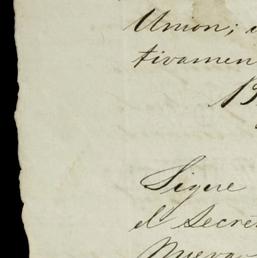 Union;
tivamen
Sigue
el Secre
Nueva